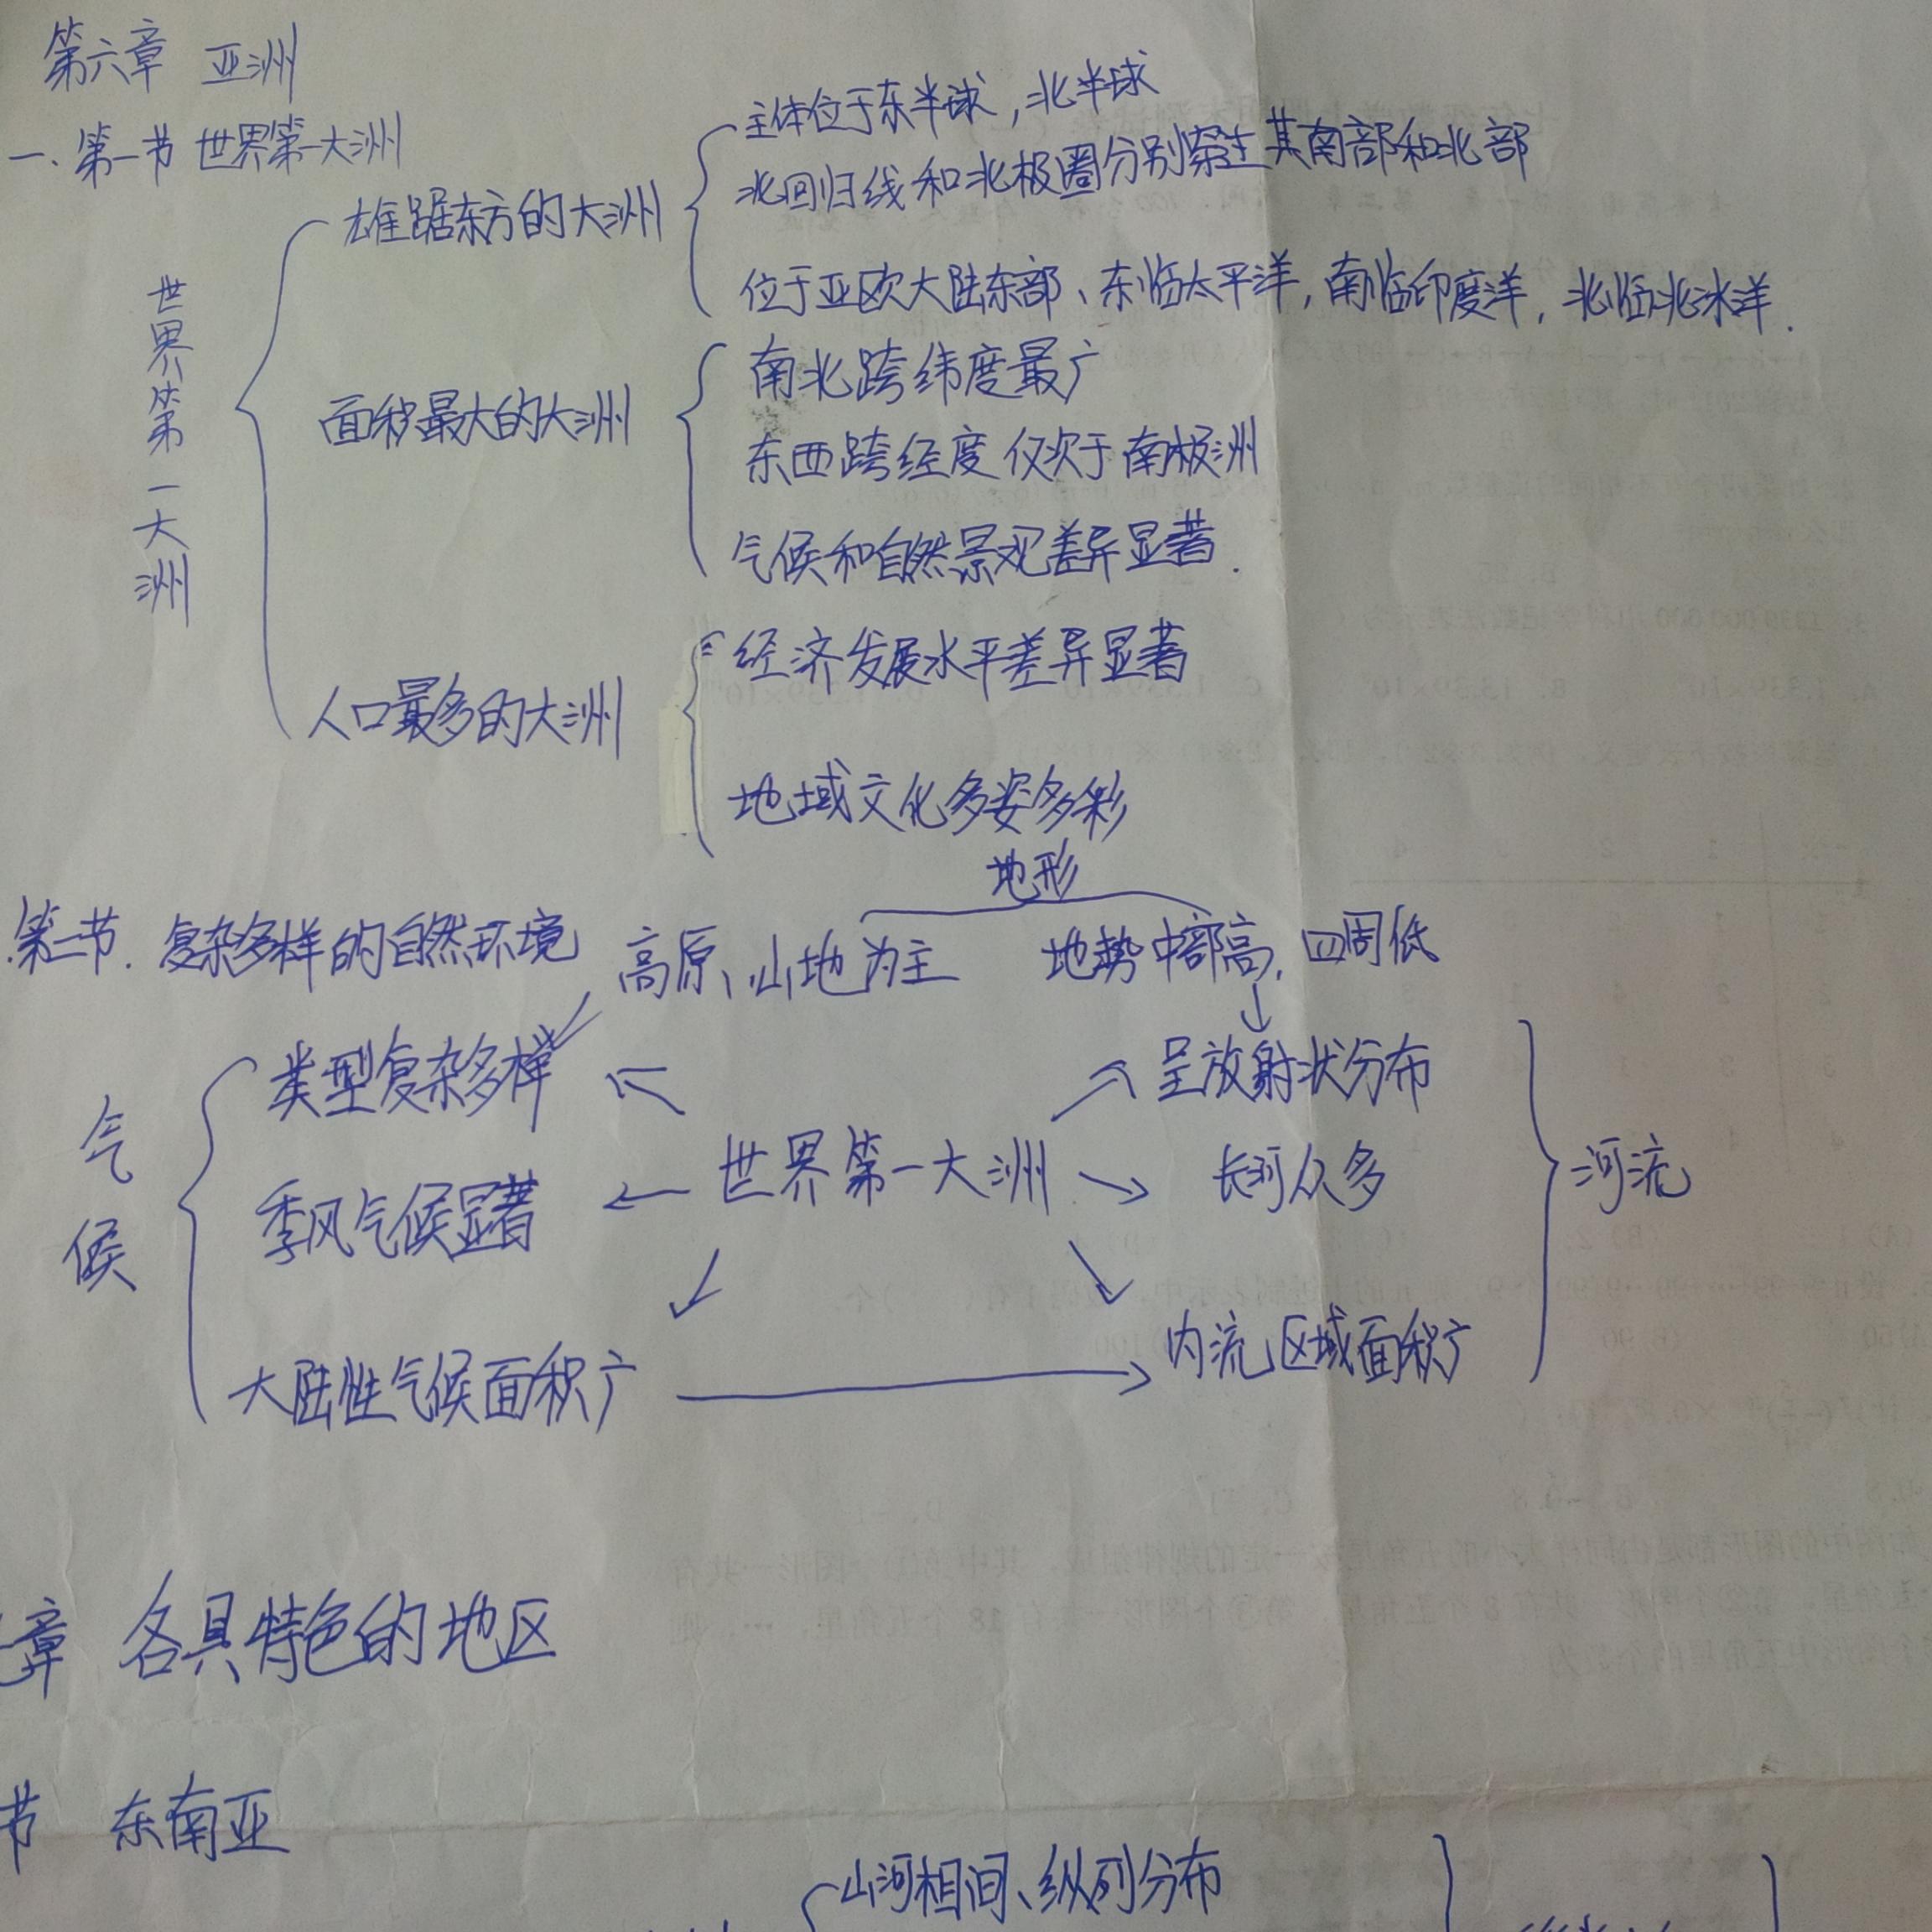 第六章 亚洲
一、第一节 世界第一大洲
世界第一大洲
雄踞东方的大洲
主体位于东半球,北半球
北回归线和北极圈分别穿过其南部和北部
位于亚欧大陆东部、东临太平洋,南临印度洋,北临北冰洋.
面积最大的大洲
南北跨纬度最广
东西跨经度仅次于南极洲
气候和自然景观差异显著.
人口最多的大洲
经济发展水平差异显著
地域文化多姿多彩
第二节. 复杂多样的自然环境
地形
高原、山地为主 地势中部高,四周低
气候
类型复杂多样
季风气候显著
大陆性气候面积广
世界第一大洲
呈放射状分布
长河众多
内流区域面积广
河流
章 各具特色的地区
节 东南亚
山河相间、纵列分布